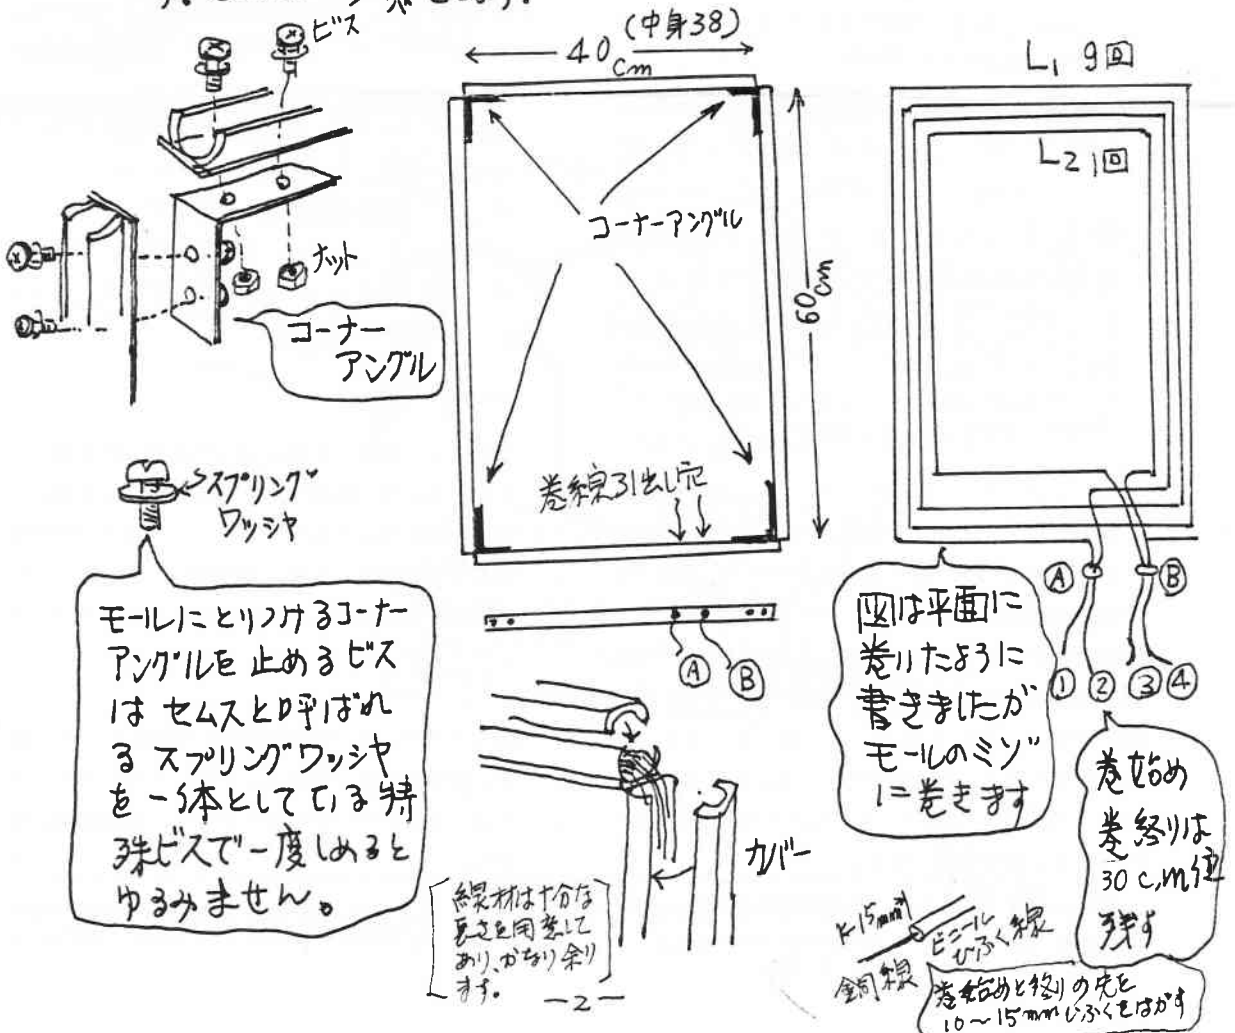 ビス
ナット
コーナー
アングル
スプリング
ワッシャ
モールにとりつけるコーナー
アングルを止めるビス
は セムスと呼ばれ
る スプリングワッシャ
を一体としている特
殊ビスで一度しめると
ゆるみません。
(中身38)
40cm
コーナーアングル
60cm
巻線引出し穴
Ⓐ Ⓑ
カバー
線材は十分な
長さを用意して
あり、かなり余り
ます。
L1 9回
L2 1回
Ⓐ Ⓑ
① ② ③ ④
図は平面に
巻いたように
書きましたが
モールのミゾ
に巻きます
巻始め
巻終りは
30c,m位
残す
15mm
ビニール
ひふく線
銅線
巻始めと終りの先を
10~15mmひふくをはがす
-2-